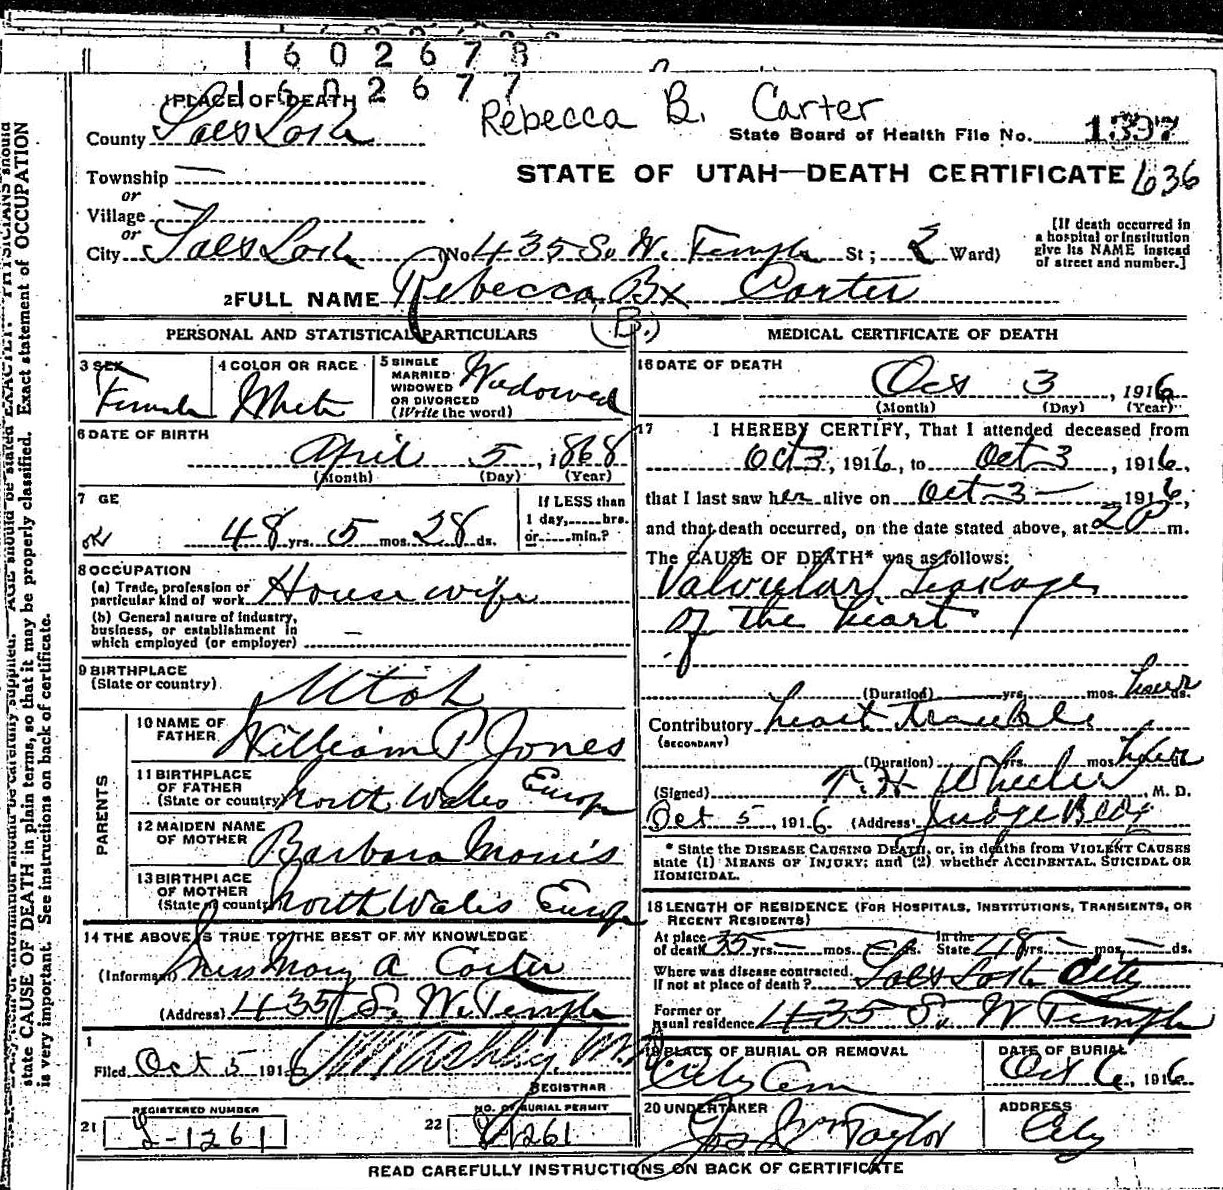 1602678
1602677
Rebecca B. Carter
1 PLACE OF DEATH
County Salt Lake
State Board of Health File No. 1397
STATE OF UTAH—DEATH CERTIFICATE 636
Township —
or
Village
or
City Salt Lake (No. 435 So. W. Temple St; 2 Ward)
[If death occurred in
a hospital or institution
give its NAME instead
of street and number.]
2 FULL NAME Rebecca B Carter
(B.)
PERSONAL AND STATISTICAL PARTICULARS
3 SEX
Female
4 COLOR OR RACE
White
5 SINGLE
MARRIED
WIDOWED
OR DIVORCED
(Write the word)
Widowed
6 DATE OF BIRTH
April 5, 1868
(Month) (Day) (Year)
7 GE
48 yrs. 5 mos. 28 ds.
If LESS than
1 day,......hrs.
or......min.?
8 OCCUPATION
(a) Trade, profession or
particular kind of work
House wife
(b) General nature of industry,
business, or establishment in
which employed (or employer) —
9 BIRTHPLACE
(State or country)
Utah
PARENTS
10 NAME OF
FATHER
William P Jones
11 BIRTHPLACE
OF FATHER
(State or country)
North Wales Europe
12 MAIDEN NAME
OF MOTHER
Barbara Morris
13 BIRTHPLACE
OF MOTHER
(State or country)
North Wales Europe
14 THE ABOVE IS TRUE TO THE BEST OF MY KNOWLEDGE
(Informant) Miss Mary A Carter
(Address) 435 S. W. Temple
Filed Oct 5 1916 Ashby, M.
REGISTRAR
REGISTERED NUMBER
21 L-1261
NO. OF BURIAL PERMIT
22 1261
MEDICAL CERTIFICATE OF DEATH
16 DATE OF DEATH
Oct 3, 1916
(Month) (Day) (Year)
17 I HEREBY CERTIFY, That I attended deceased from
Oct 3, 1916, to Oct 3, 1916,
that I last saw her alive on Oct-3— 1916,
and that death occurred, on the date stated above, at 2 P m.
The CAUSE OF DEATH* was as follows:
Valvular Leakage
of the heart
(Duration) yrs. mos. hours ds.
Contributory heart trouble
(SECONDARY)
(Duration) yrs. mos.
(Signed) Wheeler, M. D.
Oct 5, 1916 (Address) Judge Bldg
* State the DISEASE CAUSING DEATH, or, in deaths from VIOLENT CAUSES
state (1) MEANS OF INJURY; and (2) whether ACCIDENTAL, SUICIDAL OR
HOMICIDAL.
18 LENGTH OF RESIDENCE (FOR HOSPITALS, INSTITUTIONS, TRANSIENTS, OR
RECENT RESIDENTS)
At place
of death 35 yrs. — mos. ds. In the
State 48 yrs. — mos. — ds.
Where was disease contracted.
If not at place of death? Salt Lake City
Former or
usual residence 435 So. W Temple
19 PLACE OF BURIAL OR REMOVAL
City Cem
DATE OF BURIAL
Oct 6, 1916
20 UNDERTAKER
Jos Wm Taylor
ADDRESS
City
READ CAREFULLY INSTRUCTIONS ON BACK OF CERTIFICATE
state CAUSE OF DEATH in plain terms, so that it may be properly classified. Exact statement of OCCUPATION
is very important. See instructions on back of certificate.